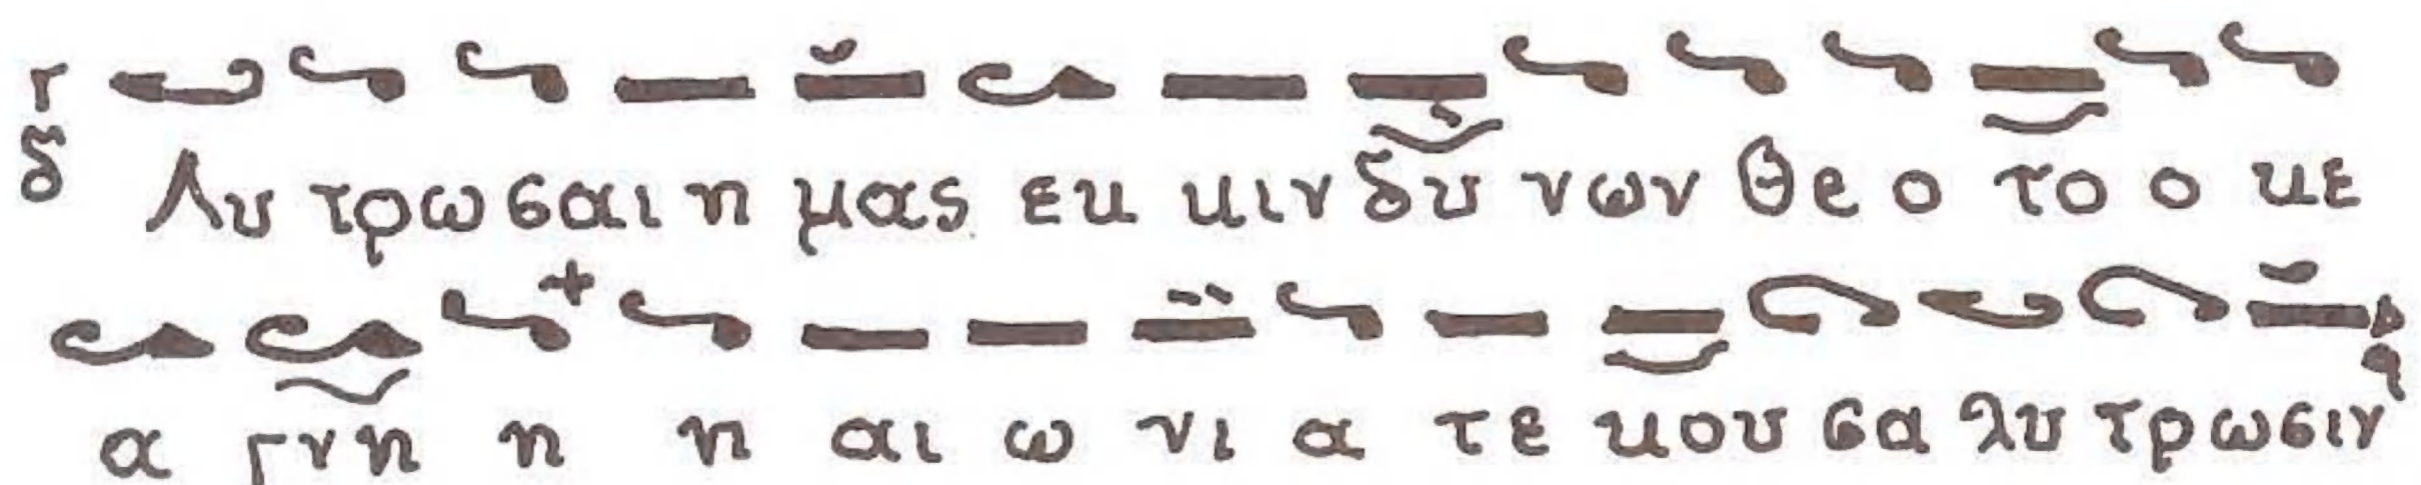 Γ
δ Λυ τρω σαι η μας εκ κιν δυ νων Θε ο το ο κε
α γνη η η αι ω νι α τε κου σα λυ τρωσιν